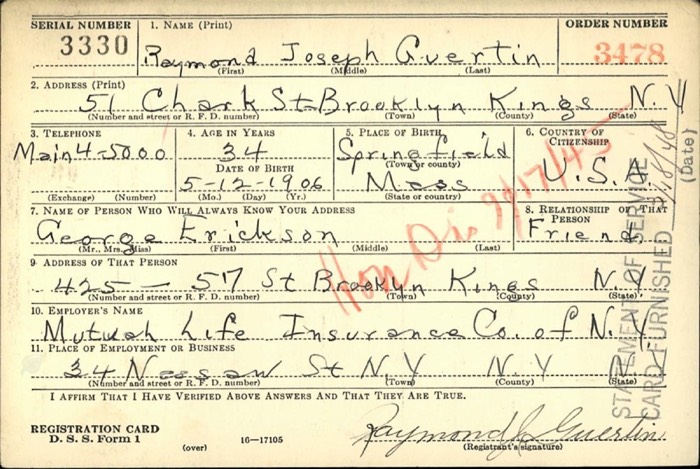 SERIAL NUMBER 1. NAME (Print) ORDER NUMBER
3330 Raymond Joseph Guertin 3478
(First) (Middle) (Last)
2. ADDRESS (Print)
51 Clark St Brooklyn Kings N.Y
(Number and street or R. F. D. number) (Town) (County) (State)
3. TELEPHONE 4. AGE IN YEARS 5. PLACE OF BIRTH 6. COUNTRY OF CITIZENSHIP
Main 4-5000 34 Springfield
(Town or county)
DATE OF BIRTH U.S.A.
5-12-1906 Mass
(Exchange) (Number) (Mo.) (Day) (Yr.) (State or country)
7. NAME OF PERSON WHO WILL ALWAYS KNOW YOUR ADDRESS 8. RELATIONSHIP OF THAT PERSON
George Erickson Friend
(Mr., Mrs., Miss) (First) (Middle) (Last)
9. ADDRESS OF THAT PERSON
425 — 57 St Brooklyn Kings N.Y
(Number and street or R. F. D. number) (Town) (County) (State)
10. EMPLOYER'S NAME
Mutual Life Insurance Co. of N.Y.
11. PLACE OF EMPLOYMENT OR BUSINESS
34 Nassau St N.Y N.Y N.Y.
(Number and street or R. F. D. number) (Town) (County) (State)
I AFFIRM THAT I HAVE VERIFIED ABOVE ANSWERS AND THAT THEY ARE TRUE.
REGISTRATION CARD
D. S. S. Form 1 (over) 16—17105
Raymond J Guertin
(Registrant's signature)
Hon Dis 9/17/45
STATEMENT OF SERVICE
CARD FURNISHED
(Date)